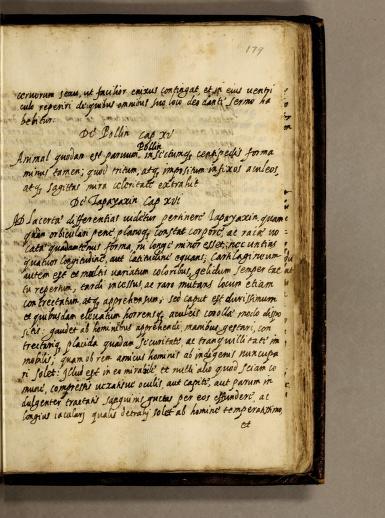 179
ceruorum sexu, ut facilior enixus contingat, et in eius uentri
culo reperiri de quibus omnibus suo loco deo dante sermo ha
bebitur.
De Pollin cap XV
Pollin
Animal quodam est paruum, insectumq; centipedis forma
minus tamen; quod tritum, atq; impositum infixos aculeos,
atq; sagittas mira celeritate extrahit
De Tapayaxin Cap XVI
Ad lacertæ differentias uidetur pertinere Tapayaxin, quam
quam orbiculari pene, planoq; constat corpore, ac raiæ uo
catæ quadantenus forma, ni longe minor esset; nec uncias
quatuor longitudine, aut latitudine equans; cartilagineum
autem est et multis uariatum coloribus, gelidum semper tac
tu repertum, tardi incessus, ac raro mutans locum etiam
contrectatum, atq; apprehensum; sed caput est durissimum
et quibusdam eleuatum horrensq; aculeis coronæ modo dispo
sitis: gaudet ab hominibus apprehendi manibus, gestari, con
trectariq; placida quadam securitate, ac tranquillitate im
mobilis, quam ob rem amicus hominis ab indigenis nuncupa
ri solet: Illud est in eo mirabile et nulli alio quod sciam co
mune, compressis uexatisue oculis, aut capite, aut parum in
dulgenter tractatis sanguinis guttas per eos effundere, ac
longius iaculari qualis detrahi solet ab homine temperatissimo,
et